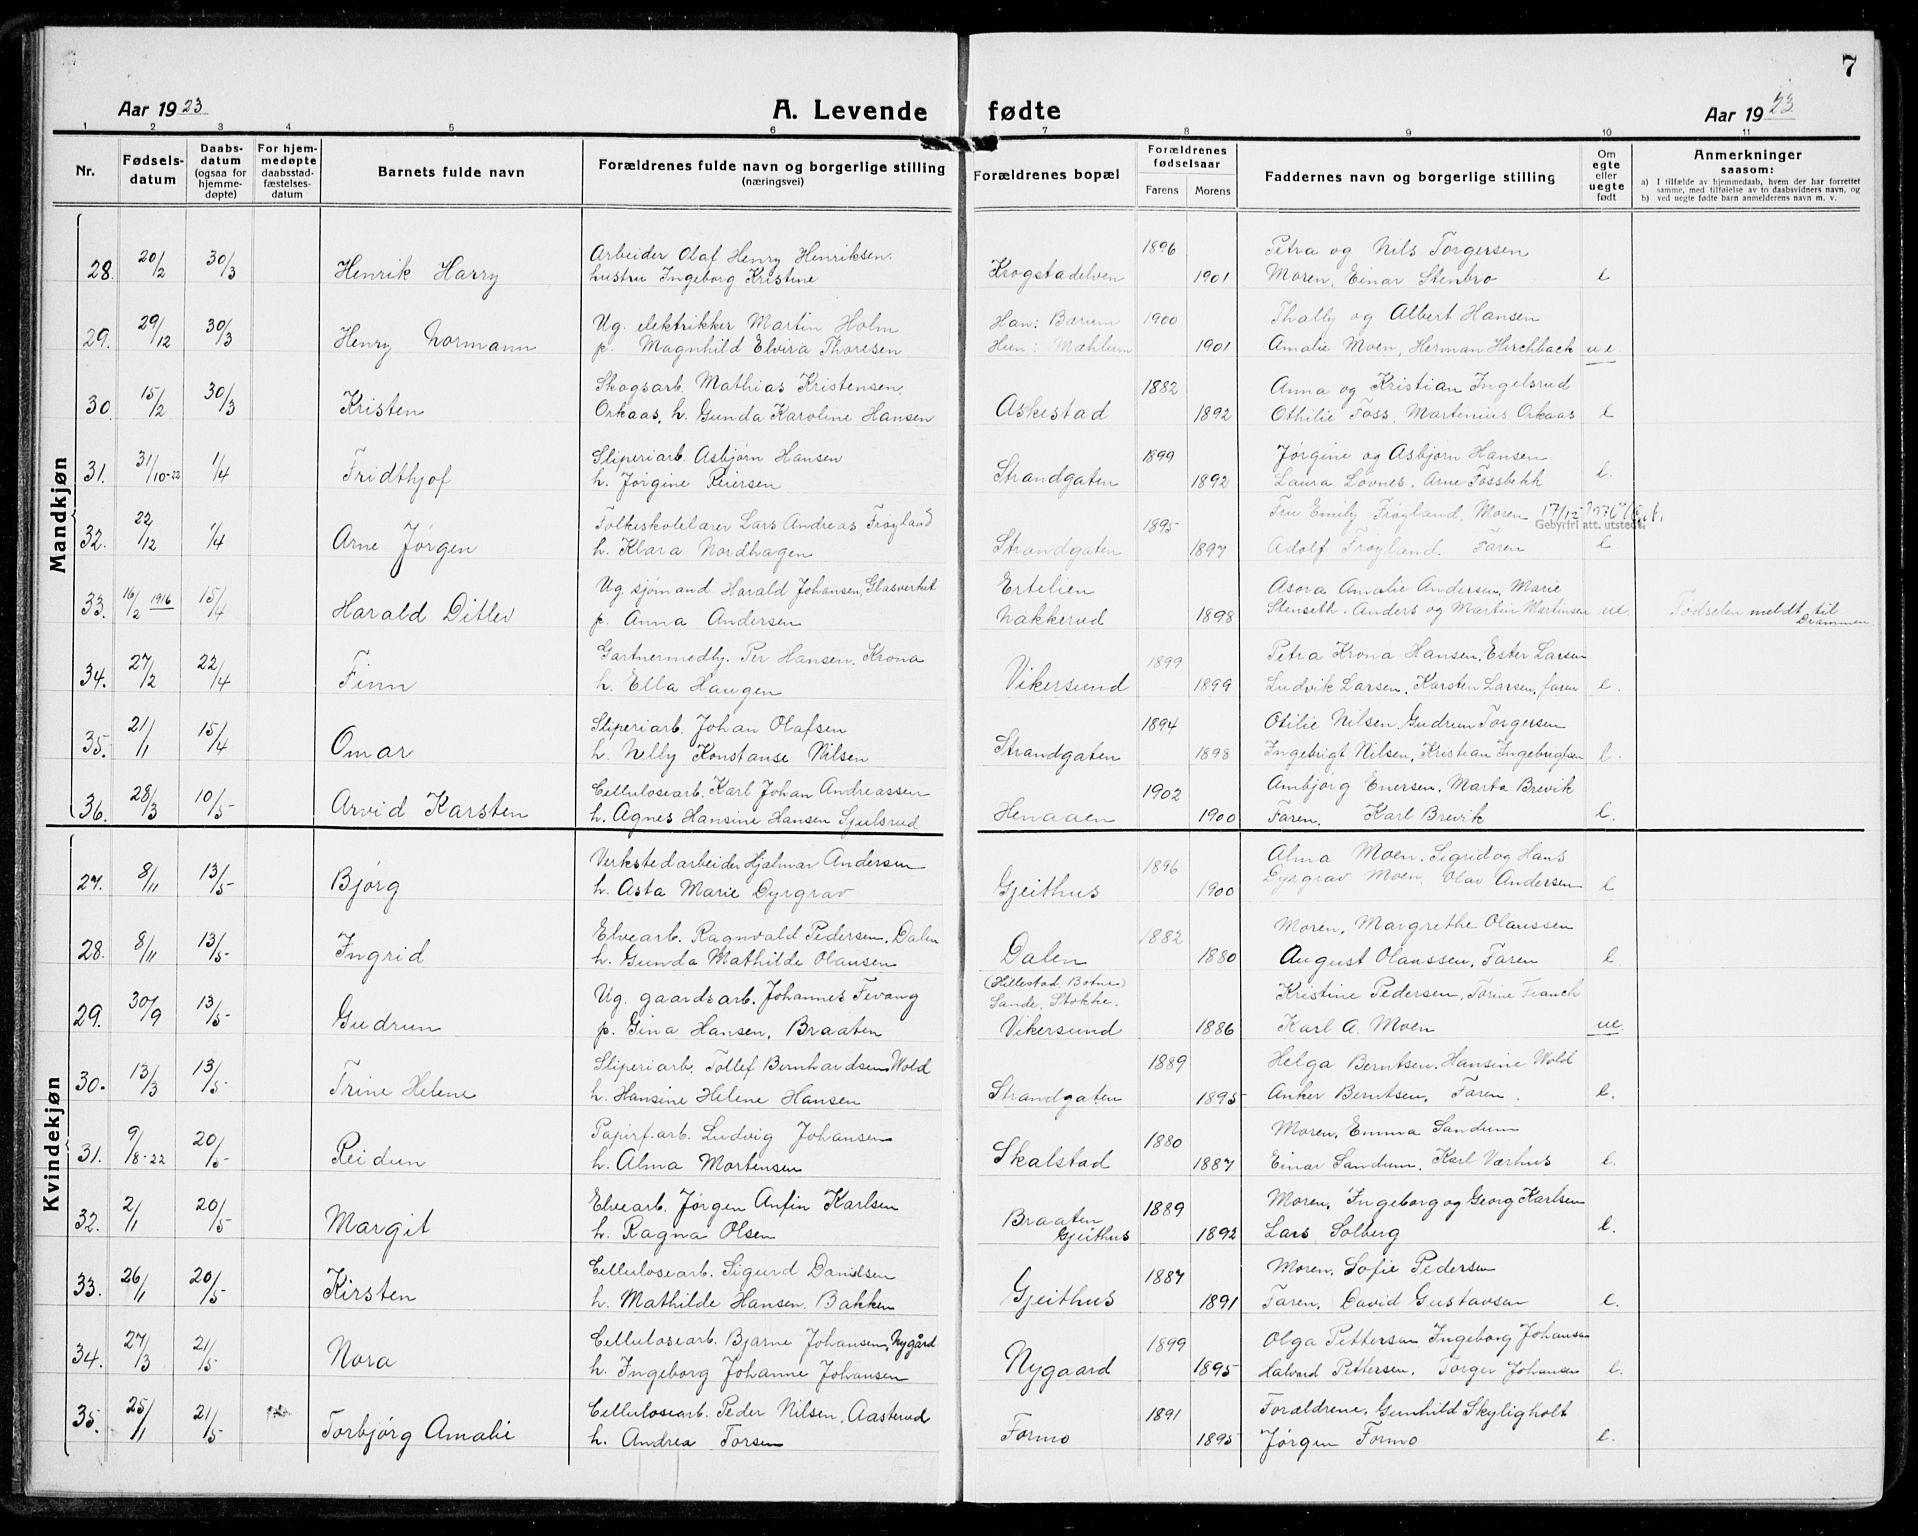 7
Aar 1923
A. Levende fødte
Aar 1923
1 2 3 4 5 6 7 8 9 10 11
Nr.
Fødsels-
datum
Daabs-
datum
(ogsaa for
hjemme-
døpte)
For hjem-
medøpte
daabsstad-
fæstelses-
datum
Barnets fulde navn
Forældrenes fulde navn og borgerlige stilling
(næringsvei)
Forældrenes bopæl
Forældrenes
fødselsaar
Farens Morens
Faddernes navn og borgerlige stilling
Om
egte
eller
uegte
født
Anmerkninger
saasom:
a) I tilfælde av hjemmedaab, hvem der har forrettet
samme, med tilføielse av to daabsvidners navn, og
b) ved uegte fødte barn anmelderens navn m. v.
Mandkjøn
28. 20/2 30/3 Henrik Harry
Arbeider Olaf Henry Henriksen,
hustru Ingeborg Kristine
Krogstadelven 1896 1901
Petra og Nils Torgersen
Moren, Einar Stenbro e
29. 29/12 30/3 Henry Normann
Ug. elektrikker Martin Holm
p. Magnhild Elvira Thoresen
Han: Bærum 1900
Hun: Mæhlum 1901
Thally og Albert Hansen
Amalie Moen, Herman Hirchback ue
30. 15/2 30/3 Kristen
Skogsarb. Mathias Kristensen,
Orkaas, h. Gunda Karoline Hansen
Askestad 1882 1892
Anna og Kristian Ingelsrud
Othilie Foss. Martenius Orkaas e
31. 31/10-22 1/4 Fridthjof
Sliperiarb. Asbjørn Hansen
h. Jørgine Reiersen
Strandgaten 1899 1892
Jørgine og Asbjørn Hansen
Laura Løvnes. Arne Fossbekk e.
32. 22/12 1/4 Arne Jørgen
Folkeskolelærer Lars Andreas Frøyland
h. Klara Nordhagen
Strandgaten 1895 1897
Fru Emily Frøyland, Moren
Gebyrfri att. utstedt
Adolf Frøyland. Faren e
33. 16/2 1916 15/4 Harald Ditlev
Ug. sjømand Harald Johansen, Glasverket
p. Anna Andersen
Ertelien
Nakkerud 1898
Asora Amalie Andersen, Marie
Stenseth. Anders og Martin Martinsen ue.
Fødselen meldt til
Drammen
34. 27/2 22/4 Finn
Gartnermedhj. Per Hansen, Krona
h. Ella Haugen
Vikersund 1899 1899
Petra Krona Hansen, Ester Larsen
Ludvik Larsen, Karsten Larsen, faren e.
35. 21/1 15/4 Omar
Sliperiarb. Johan Olafsen
h. Nelly Konstanse Nilsen
Strandgaten 1894 1898
Otilie Nilsen. Gudrun Torgersen
Ingebrigt Nilsen, Kristian Ingebrigtsen e.
36. 28/3 10/5 Arvid Karsten
Cellulosearb. Karl Johan Andreassen
h. Agnes Hansine Hansen Sjulsrud
Henaaen 1902 1900
Ambjørg Enersen, Marta Brevik
Faren. Karl Brevik e.
Kvindekjøn
27. 8/11 13/5 Bjørg
Verkstedarbeider Hjalmar Andersen
h. Asta Marie Dyrgrav
Gjeithus 1896 1900
Alma Moen. Sigrid og Hans
Dyrgrav Moen. Olav Andersen e
28. 8/11 13/5 Ingrid
Elvearb. Ragnvald Pedersen, Dalen
h. Gunda Mathilde Olausen
Dalen 1882 1880
Moren, Margrethe Olaussen
August Olaussen, Faren e.
29. 30/9 13/5 Gudrun
Ug. gaardsarb. Johannes Fevang
p. Gina Hansen, Braaten
(Hillestad, Botne)
Sande, Stokke.
Vikersund 1886
Kristine Pedersen, Torine Franch
Karl A. Moen ue.
30. 13/3 13/5 Trine Helene
Sliperiarb. Tollef Bernhardsen Wold
h. Hansine Helene Hansen
Strandgaten 1889 1895
Helga Berntsen. Hansine Wold
Anker Berntsen, Faren. e.
31. 9/8-22 20/5 Reidun
Papirf.arb. Ludvig Johansen
h. Alma Mortensen
Skalstad 1880 1887
Moren, Emma Sandum
Einar Sandum, Karl Værhus e.
32. 2/1 20/5 Margit
Elvearb. Jørgen Anfin Karlsen
h. Ragna Olsen
Braaten
Gjeithus 1889 1892
Moren, Ingeborg og Georg Karlsen
Lars Solberg e.
33. 26/1 20/5 Kirsten
Cellulosearb. Sigurd Danielsen
h. Mathilde Hansen. Bakken
Gjeithus 1887 1891
Moren, Sofie Pedersen
Faren, David Gustavsen e.
34. 27/3 21/5 Nora
Cellulosearb. Bjarne Johansen, Nygård
h. Ingeborg Johanne Johansen
Nygaard 1899 1895
Olga Pettersen Ingeborg Johansen
Halvard Pettersen. Torger Johansen e.
35. 25/1 21/5 Torbjørg Amalie
Cellulosearb. Peder Nilsen, Aasterud
h. Andrea Torsen
Formo 1891 1895
Forældrene. Gunhild Skyligholt
Jørgen Formo e.